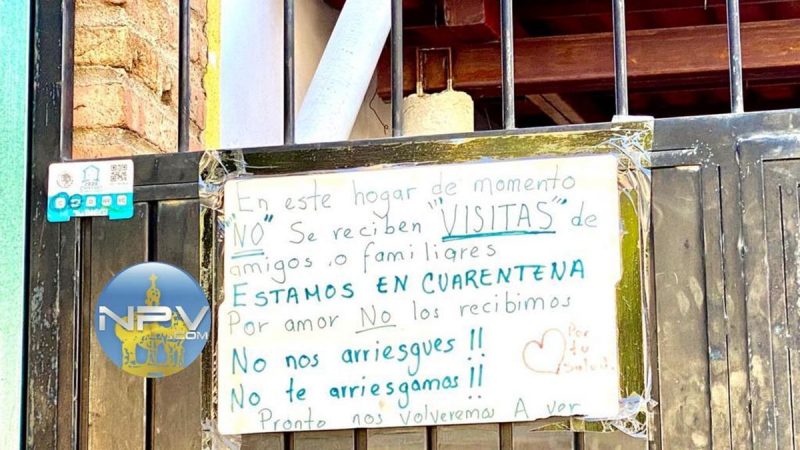 En este hogar de momento
"NO" Se reciben "VISITAS" de
amigos o familiares
ESTAMOS EN CUARENTENA
Por amor No los recibimos
No nos arriesgues !!
No te arriesgamos !!
Pronto nos volveremos A ver
Por
tu
salud.
NPV
.COM